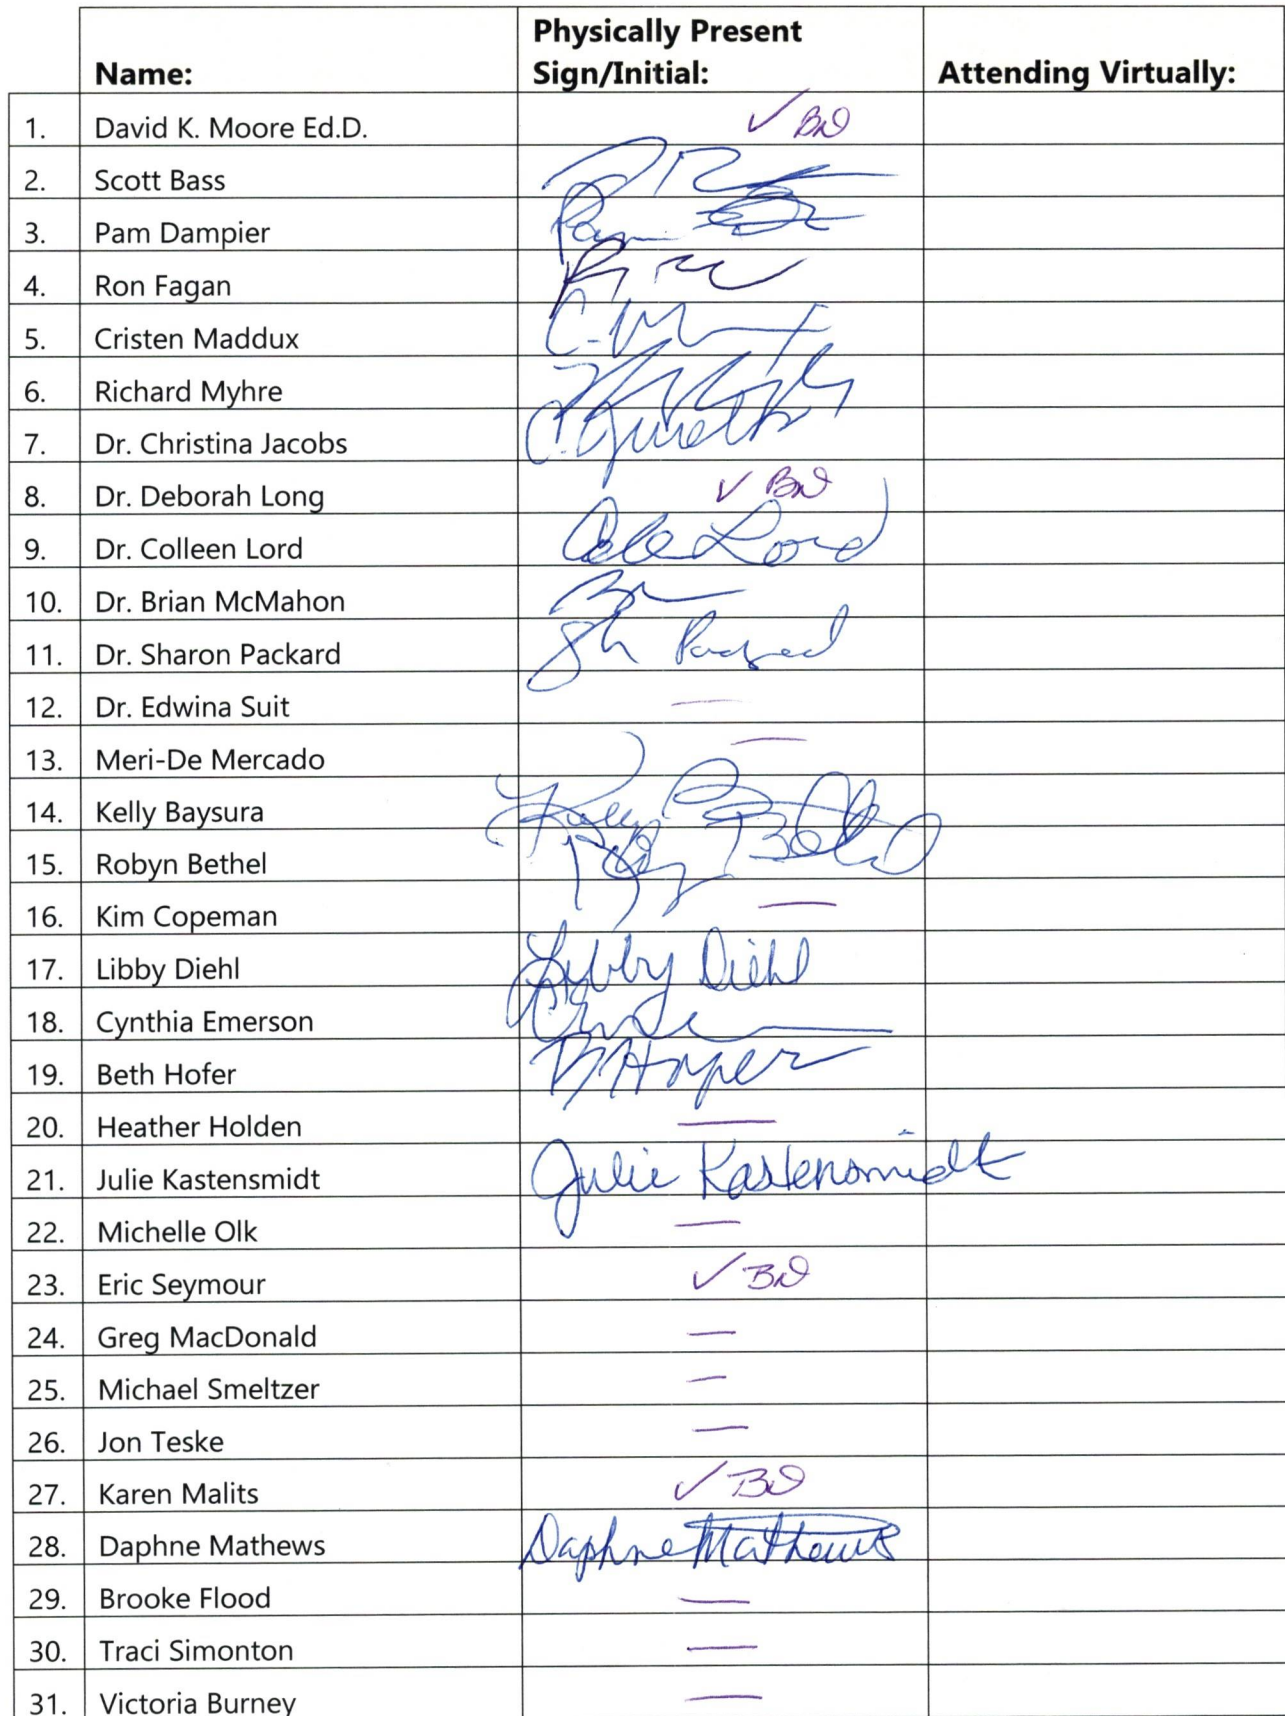 Name: Physically Present Sign/Initial: Attending Virtually:
1. David K. Moore Ed.D. ✓ BD
2. Scott Bass
3. Pam Dampier Pam
4. Ron Fagan
5. Cristen Maddux
6. Richard Myhre
7. Dr. Christina Jacobs
8. Dr. Deborah Long ✓ BD
9. Dr. Colleen Lord Lord
10. Dr. Brian McMahon
11. Dr. Sharon Packard
12. Dr. Edwina Suit —
13. Meri-De Mercado —
14. Kelly Baysura Kelly
15. Robyn Bethel
16. Kim Copeman —
17. Libby Diehl Libby Diehl
18. Cynthia Emerson
19. Beth Hofer
20. Heather Holden —
21. Julie Kastensmidt Julie Kastensmidt
22. Michelle Olk —
23. Eric Seymour ✓ BD
24. Greg MacDonald —
25. Michael Smeltzer —
26. Jon Teske —
27. Karen Malits ✓ BD
28. Daphne Mathews Daphne Mathews
29. Brooke Flood —
30. Traci Simonton —
31. Victoria Burney —